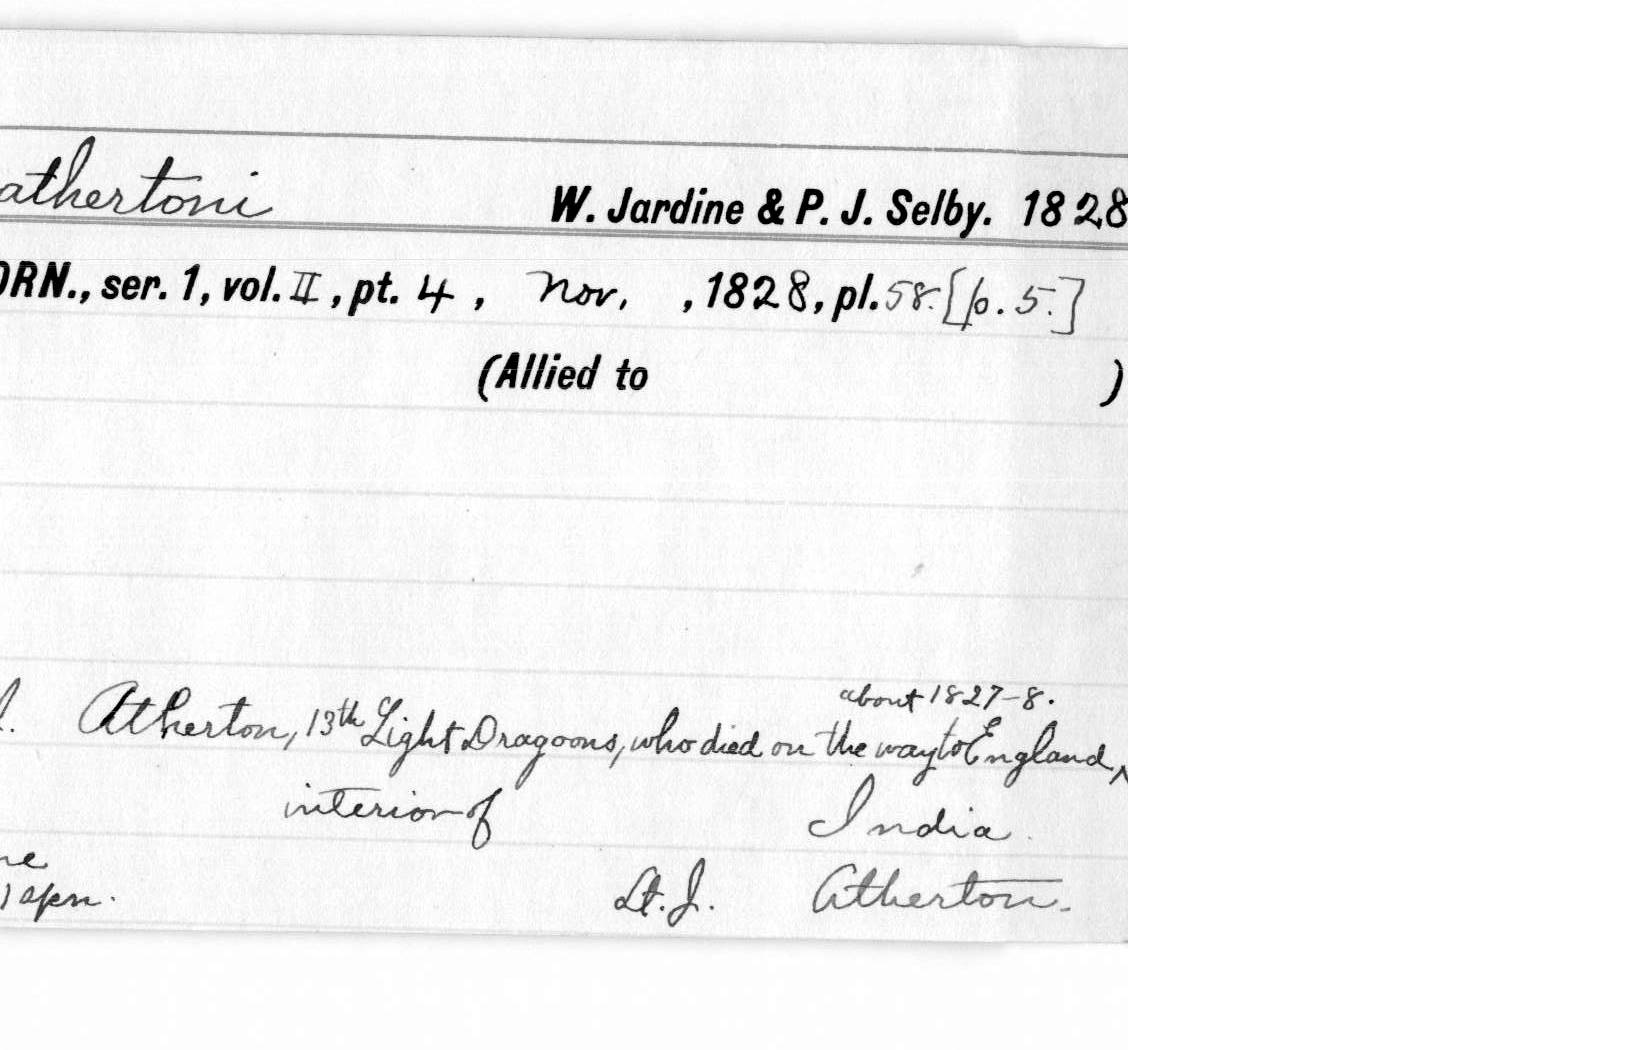 athertoni W. Jardine & P. J. Selby. 1828
ORN., ser. 1, vol. II, pt. 4, Nov. , 1828, pl. 58. [p. 5.]
(Allied to )
about 1827-8.
J. Atherton, 13th Light Dragoons, who died on the way to England,
interior of India.
ne
1) open.
Lt. J. Atherton.